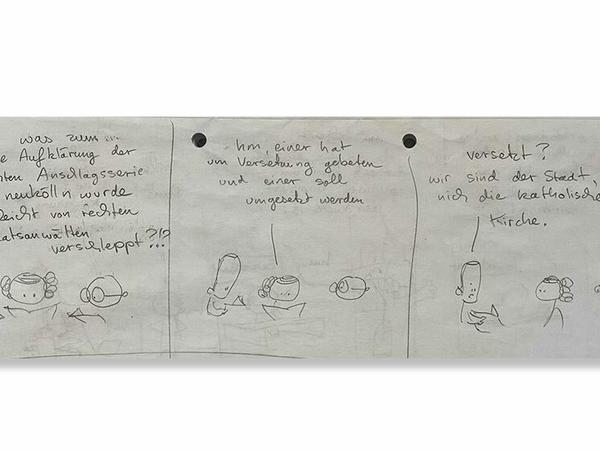 was zum
e Aufklärung der
ten Anschlagsserie
neukölln wurde
leicht von rechten
atsanwälten
verschleppt?!?
hm, einer hat
um Versetzung gebeten
und einer soll
umgesetzt werden
versetzt?
wir sind der Stadt,
nich die katholische
Kirche.